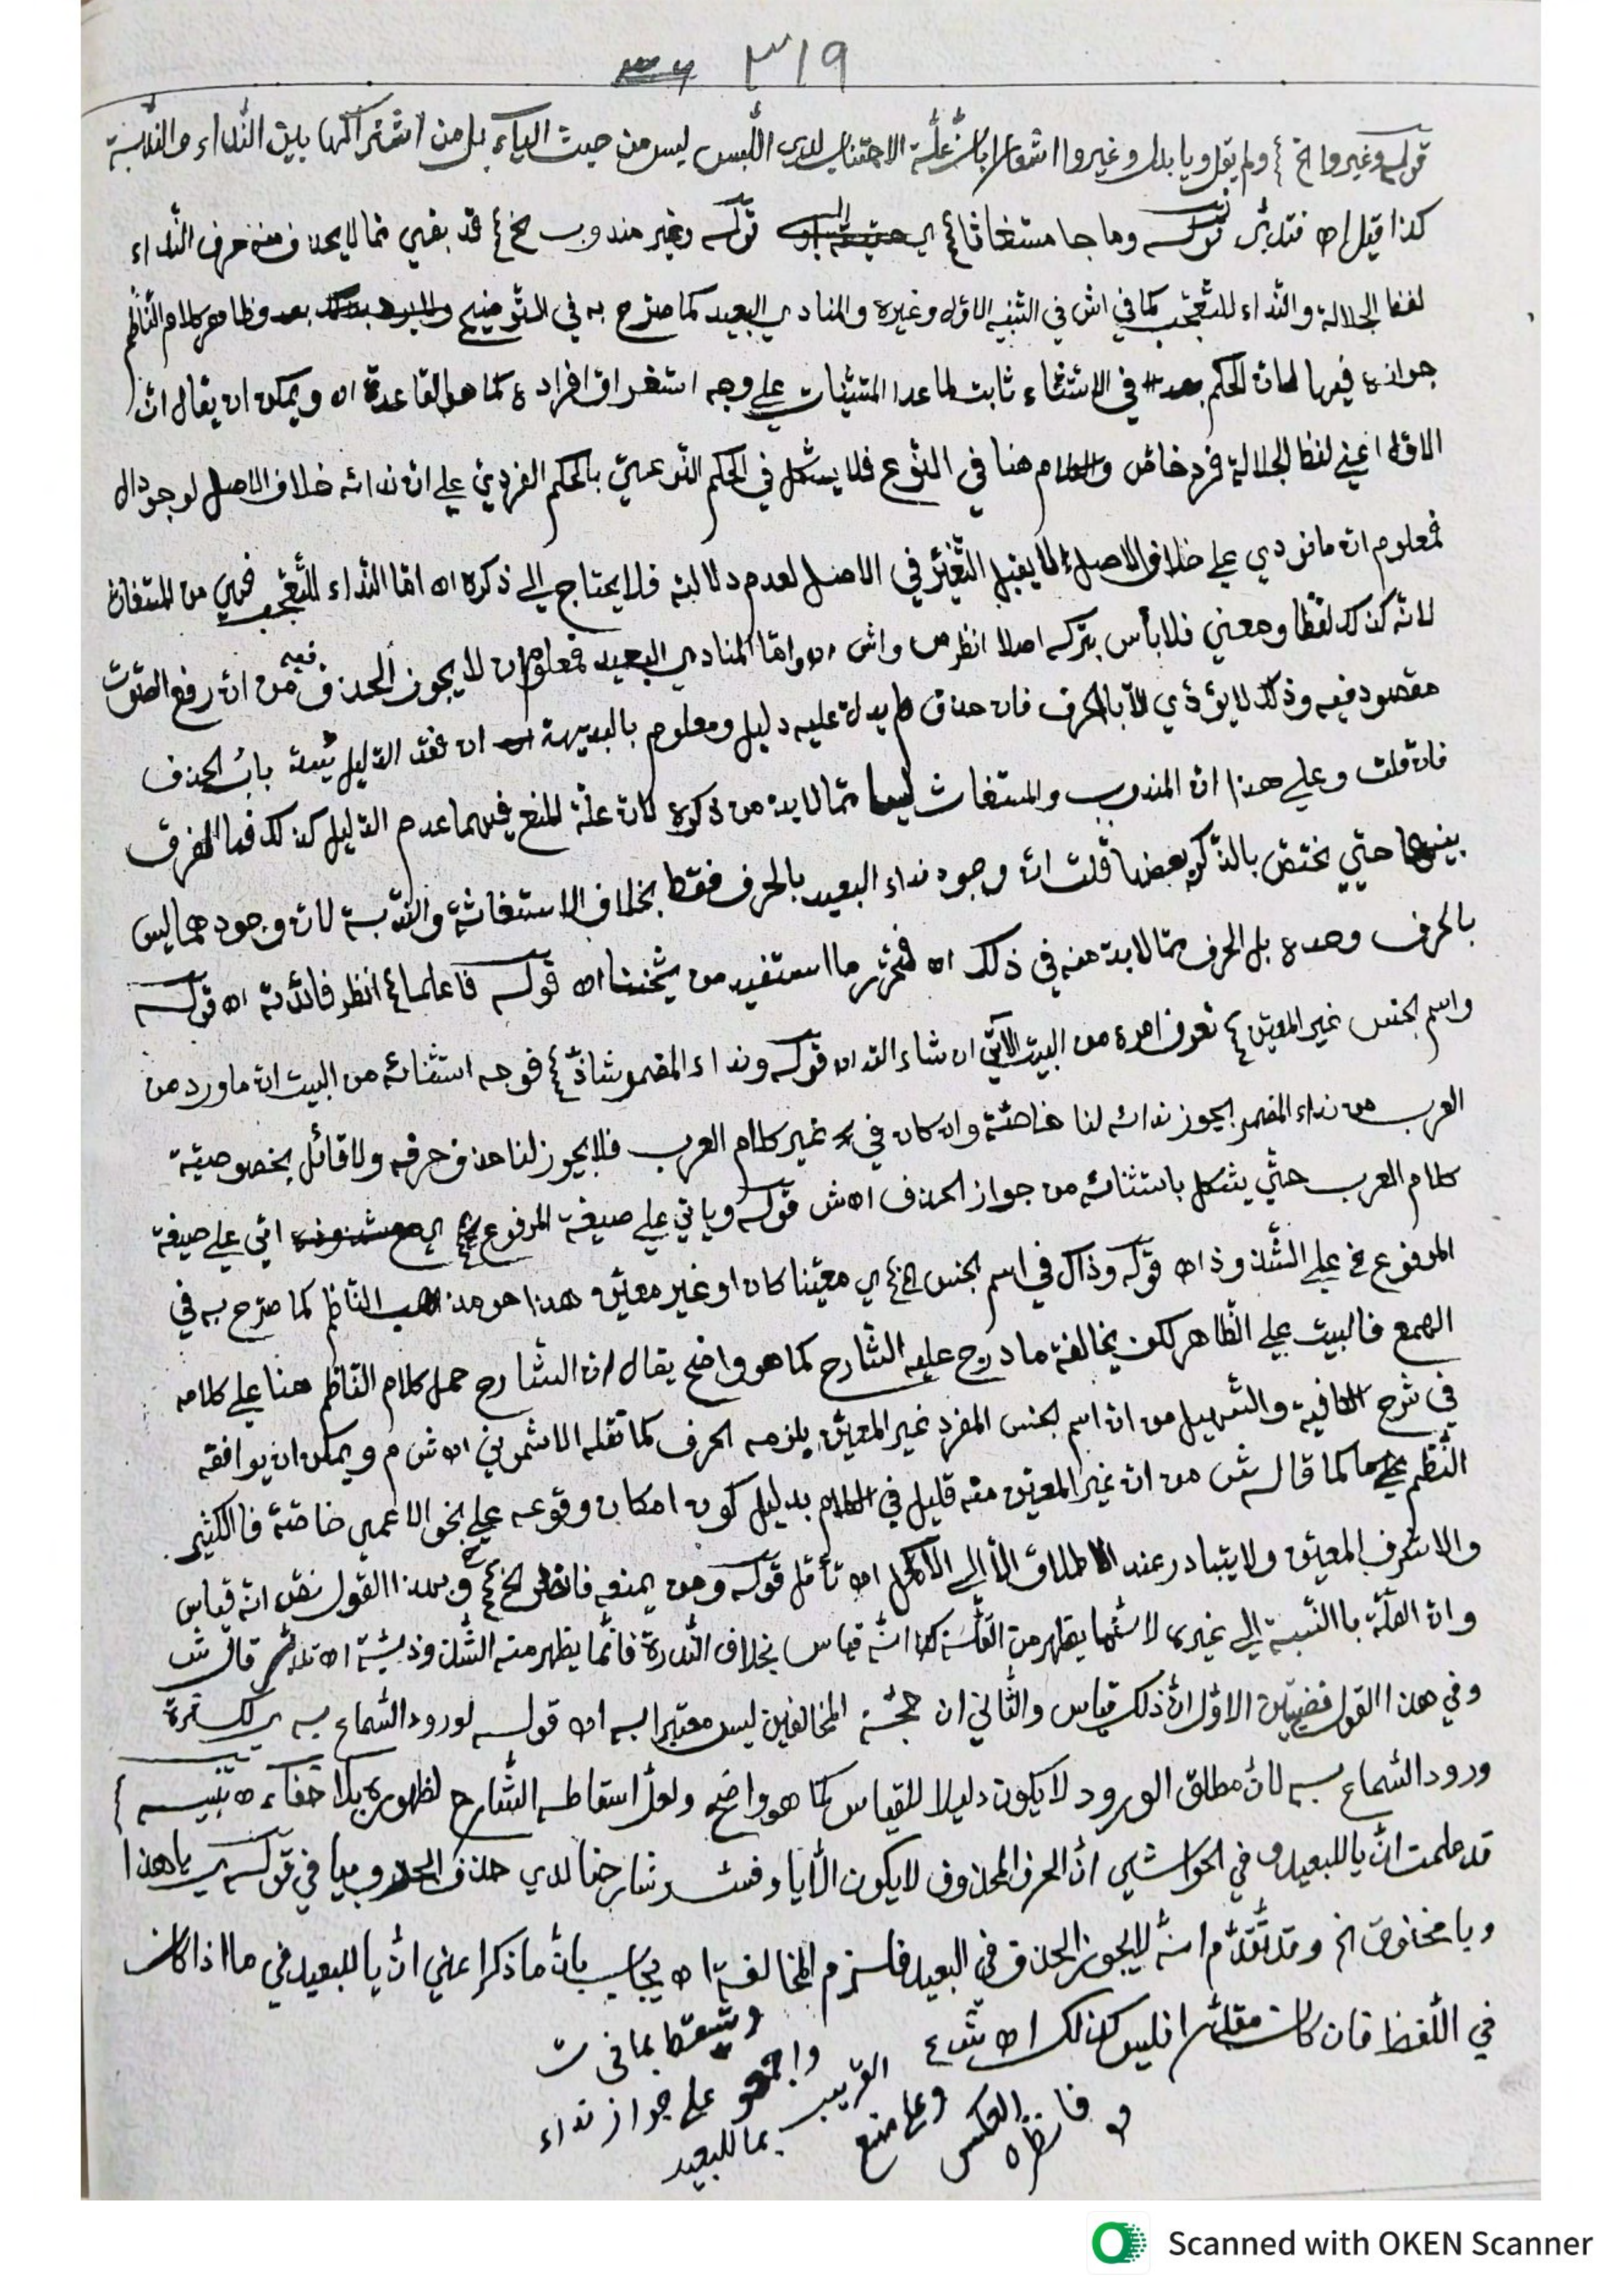 ٣١٩
قوله وغيروا الخ ولم يقل ويا بدل وغيروا اشعارا بان علة الاجتناب لدى اللبس ليس من حيث الياء بل من اشتراكها بين النداء والندبة
كذا قيل اه فتدبر قوله وما جا مستغاثا اي قوله وغير مندوب الخ قد بقي مما لا يحذف منه حرف النداء
لفظ الجلالة والنداء للتعجب كما في اش في التنبيه الاول وغيره والمنادي البعيد كما صرح به في التوضيح وظاهر كلام الناظم
جوازه فيها لان الحكم في الاستثناء ثابت لما عدا المستثنيات علي وجه استغراق افراده كما هو القاعدة اه ويمكن ان يقال ان
الاول اعني لفظ الجلالة فرد خاص والكلام هنا في النوع فلا يشكل في الحكم النوعي بالحكم الفردي علي ان ندائه خلاف الاصل لوجود ال
فمعلوم ان ما نودي علي خلاف الاصل لا يقبل التغير في الاصل لعدم دلالته فلا يحتاج الي ذكره اه اما النداء للتعجب فهي من المستغاث
لانه كذلك لفظا ومعني فلا بأس بتركه اصلا انظر ص واش اه واما المنادي البعيد فمعلوم ان لا يجوز الحذف فيه من ان رفع الصوت
مقصود فيه وذلك لا يؤدي الا بالحرف فان حذف لم يدل عليه دليل ومعلوم بالبديهة ان فقد الدليل باب الحذف
فان قلت وعلي هذا ان المندوب والمستغاث ليسا مما لا بد من ذكره لان علة المنع فيهما عدم الدليل كذلك فما الفرق
بينهما حتي يختص بالذكر بعضها قلت ان وجود نداء البعيد بالحرف فقط بخلاف الاستغاثة والندبة لان وجودهما ليس
بالحرف وحده بل الحرف مما لا بد منه في ذلك اه فتحرر ما استفيد من شيخنا اه قوله فاعلما انظر فائدته اه قوله
واسم الجنس غير المعين تعرف امره من البيت الآتي ان شاء الله اه قوله ونداء المضمر شاذ فوجه استثنائه من البيت ان ما ورد من
العرب من نداء المضمر يجوز ندائه لنا خاصة وان كان في غير كلام العرب فلا يجوز لنا حذف حرفه ولا قائل بخصوصية
كلام العرب حتي يشكل باستثنائه من جواز الحذف اه ش قوله وياتي علي صيغة المرفوع اي اتي علي صيغة
المرفوع الخ علي الشذوذ اه قوله وذاك في اسم الجنس الخ اي معينا كان او غير معين وهذا هو مذهب الناظم كما صرح به في
الهمع فالبيت علي الظاهر لكن يخالفه ما درج عليه الشارح كما هو واضح يقال ان الشارح حمل كلام الناظم هنا علي كلامه
في شرح الكافية والتسهيل من ان اسم الجنس المفرد غير المعين يلزمه الحرف كما نقله الاشموني اه ش م ويمكن ان يوافقه
النظم كما قال ش من ان غير المعين منه قليل في الكلام بدليل كون امكان وقوعه علي نحو الاعمي خاصة فالكثير
والاشرف المعين ولا يتبادر عند الاطلاق الا الي الاكمل اه تأمل قوله ومن يمنعه فانظر الخ وبهذا القول نص انه قياس
وان القلة بالنسبة الي غيره لا سيما يظهر من القلة انه قياس بخلاف الندرة فانما يظهر منه الشذوذية اه قال ش
وفي هذا القول قضيتين الاول ان ذلك قياس والثاني ان حجة المخالفين ليس معتبرا به اه قوله لورود السماع به اي لكثرة
ورود السماع به لان مطلق الورود لا يكون دليلا للقياس كما هو واضح ولعل اسقاطه الشارح لظهوره بلا خفاء اه تنبيه
قد علمت ان يا للبعيد وفي الحواشي ان الحرف المحذوف لا يكون الا يا وفسر شارحنا لدي حذف الحرف بيا في قوله اي يا هذا
ويا مخنوق الخ وقد تقدم انه لا يجوز الحذف في البعيد فلزم المخالفة اه يجاب بان ما ذكر اعني ان يا للبعيد في ما اذا كان
في اللفظ فان كان مقدرا فليس كذلك اه ش
واجمعو علي جواز نداء
القريب بما للبعيد
وعلي منع
العكس
فانظره